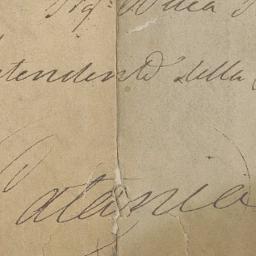 Sig.
tendente della
Catania